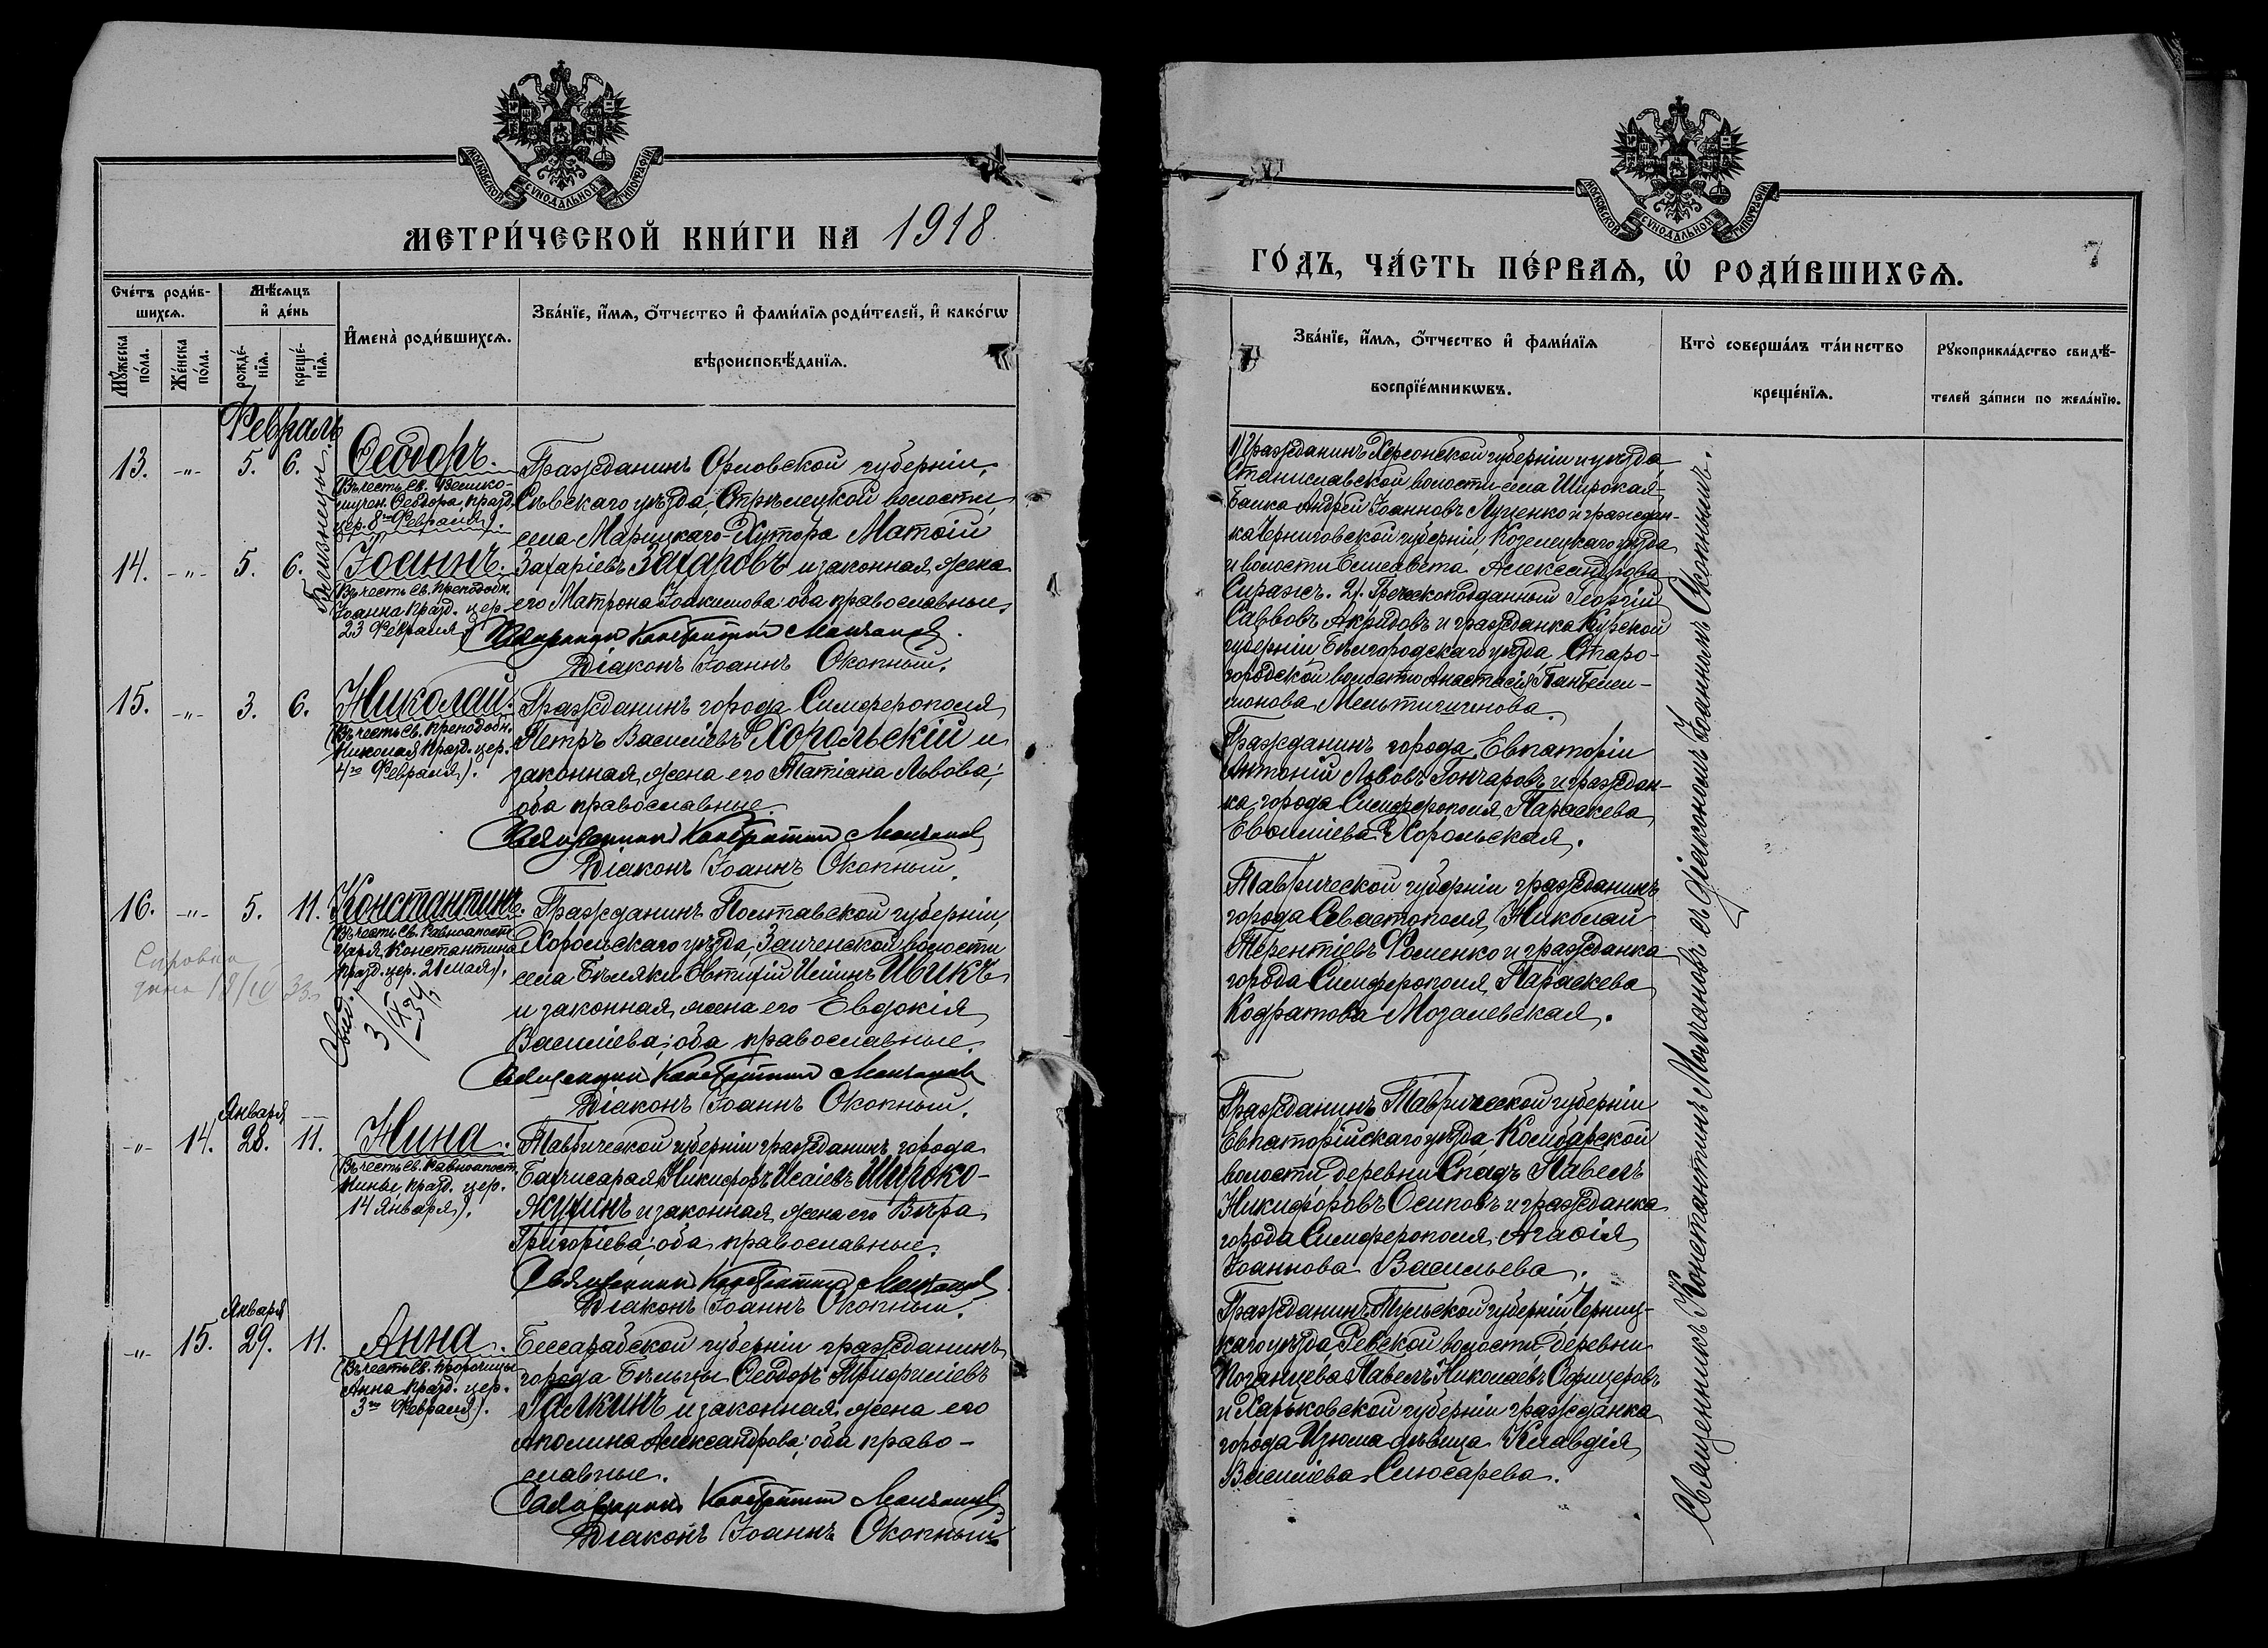 МОСКОВСКОЙ СѴНОДАЛЬНОЙ ТИПОГРАФІИ
МЕТРИ́ЧЕСКОЙ КНИ́ГИ НА 1918
Сче́тъ роди́в-
шихсѧ.
Мѣ́сѧцъ
и҆ де́нь
И҆мена̀ роди́вшихсѧ.
Зва́нїе, и҆́мѧ, ѻ҆́тчество и҆ фами́лїѧ роди́телей, и҆ како́гѡ
вѣроисповѣ́данїѧ.
Мꙋ́жеска по́ла.
Же́нска по́ла.
рожде́-
нїѧ.
креще́-
нїѧ.
Февраль
Близнецы.
13. -"- 5. 6. Ѳеодоръ.
(Въ честь св. Велико-
мучен. Ѳеодора, празд.
цер. 8го Февраля).
Гражданинъ Орловской губерніи,
Сѣвскаго уѣзда, Стрѣлецкой волости,
села Марицкаго-Хутора Матѳій
14. -"- 5. 6. Іоаннъ.
(Въ честь св. преподобн.
Іоанна празд. цер.
23 Февраля)
Захаріевъ Захаровъ и законная жена
его Матрона Іоакимова: оба православные.
Священникъ Константинъ Молчановъ.
Діаконъ Іоаннъ Окопный.
15. -"- 3. 6. Николай.
(Въ честь св. преподобн.
Николая празд. цер.
4го Февраля).
Гражданинъ города Симферополя
Петръ Василіевъ Хорольскій и
законная жена его Татіана Львова;
оба православные.
Священникъ Константинъ Молчановъ
Діаконъ Іоаннъ Окопный.
16. -"- 5. 11. Константинъ.
(Въ честь св. Равноапост.
Царя Константина
празд. цер. 21 мая).
Справка
дана 18/IV 33.
Свид.
3/IX 34
Гражданинъ Полтавской губерніи,
Хорольскаго уѣзда, Заиченской волости
села Бѣляки Евтихій Ивикъ
и законная жена его Евдокія
Василіева; оба православные.
Священникъ Константинъ Молчановъ
Діаконъ Іоаннъ Окопный.
Января
-"- 14. 28. 11. Нина.
(Въ честь св. Равноапост.
Нины, празд. цер.
14 Января).
Таврической губерніи гражданинъ города
Бахчисарая Никифоръ Исаіевъ Широко-
и законная жена его Вѣра
Григоріева: оба православные.
Священникъ Константинъ Молчановъ
Діаконъ Іоаннъ Окопный.
Января
-"- 15. 29. 11. Анна.
(Въ честь св. пророчицы
Анна празд. цер.
3го Февраля).
Бессарабской губерніи гражданинъ
города Бѣльцы Ѳеодоръ Трифиліевъ
Галкинъ и законная жена его
Аполина Александрова; оба право-
славные.
Священникъ Константинъ Молчановъ
Діаконъ Іоаннъ Окопный
МОСКОВСКОЙ СѴНОДАЛЬНОЙ ТИПОГРАФІИ
ГО́ДЪ, ЧА́СТЬ ПЕ́РВАѦ, Ѽ РОДИ́ВШИХСѦ.
7
Зва́нїе, и҆́мѧ, ѻ҆́тчество и҆ фами́лїѧ
воспрїе́мникѡвъ.
Кто̀ соверша́лъ та́инство
креще́нїѧ.
Рꙋкоприкла́дство свидѣ́-
телей за́писи по жела́нїю.
1) Гражданинъ Херсонской губерніи и уѣзда
Станиславской волости села Широкая-
Балка Андрей Іоанновъ Луценко и граждан-
ка Черниговской губерніи, Козелецкаго уѣзда
и волости Елисавета Александрова
Сираж. 2). Греческоподданный Георгій
Савновъ Акридовъ и гражданка Курской
губерніи Бѣлгородскаго уѣзда Старо-
городской волости Анастасія Пантелеи-
монова
Гражданинъ города Евпаторіи
Антоній Львовъ Гончаровъ и граждан-
ка города Симферополя Параскева
Евѳиміева Хорольская.
Таврической губерніи гражданинъ
города Севастополя Николай
Терентіевъ Фоменко и гражданка
города Симферополя Параскева
Кодратова Мозалевская.
Гражданинъ Таврической губерніи
Евпаторійскаго уѣзда,
волости деревни Спатъ Павелъ
Никифоровъ Осиповъ и гражданка
города Симферополя Агаѳія
Іоаннова Васильева.
Гражданинъ Тульской губерніи,
каго уѣзда волости деревни
Павелъ Николаевъ Офицеровъ
и Харьковской губерніи гражданка
города Изюма дѣвица Клавдія
Василіева Слюсарева.
Священникъ Константинъ Молчановъ съ діакономъ Іоанномъ Окопнымъ.